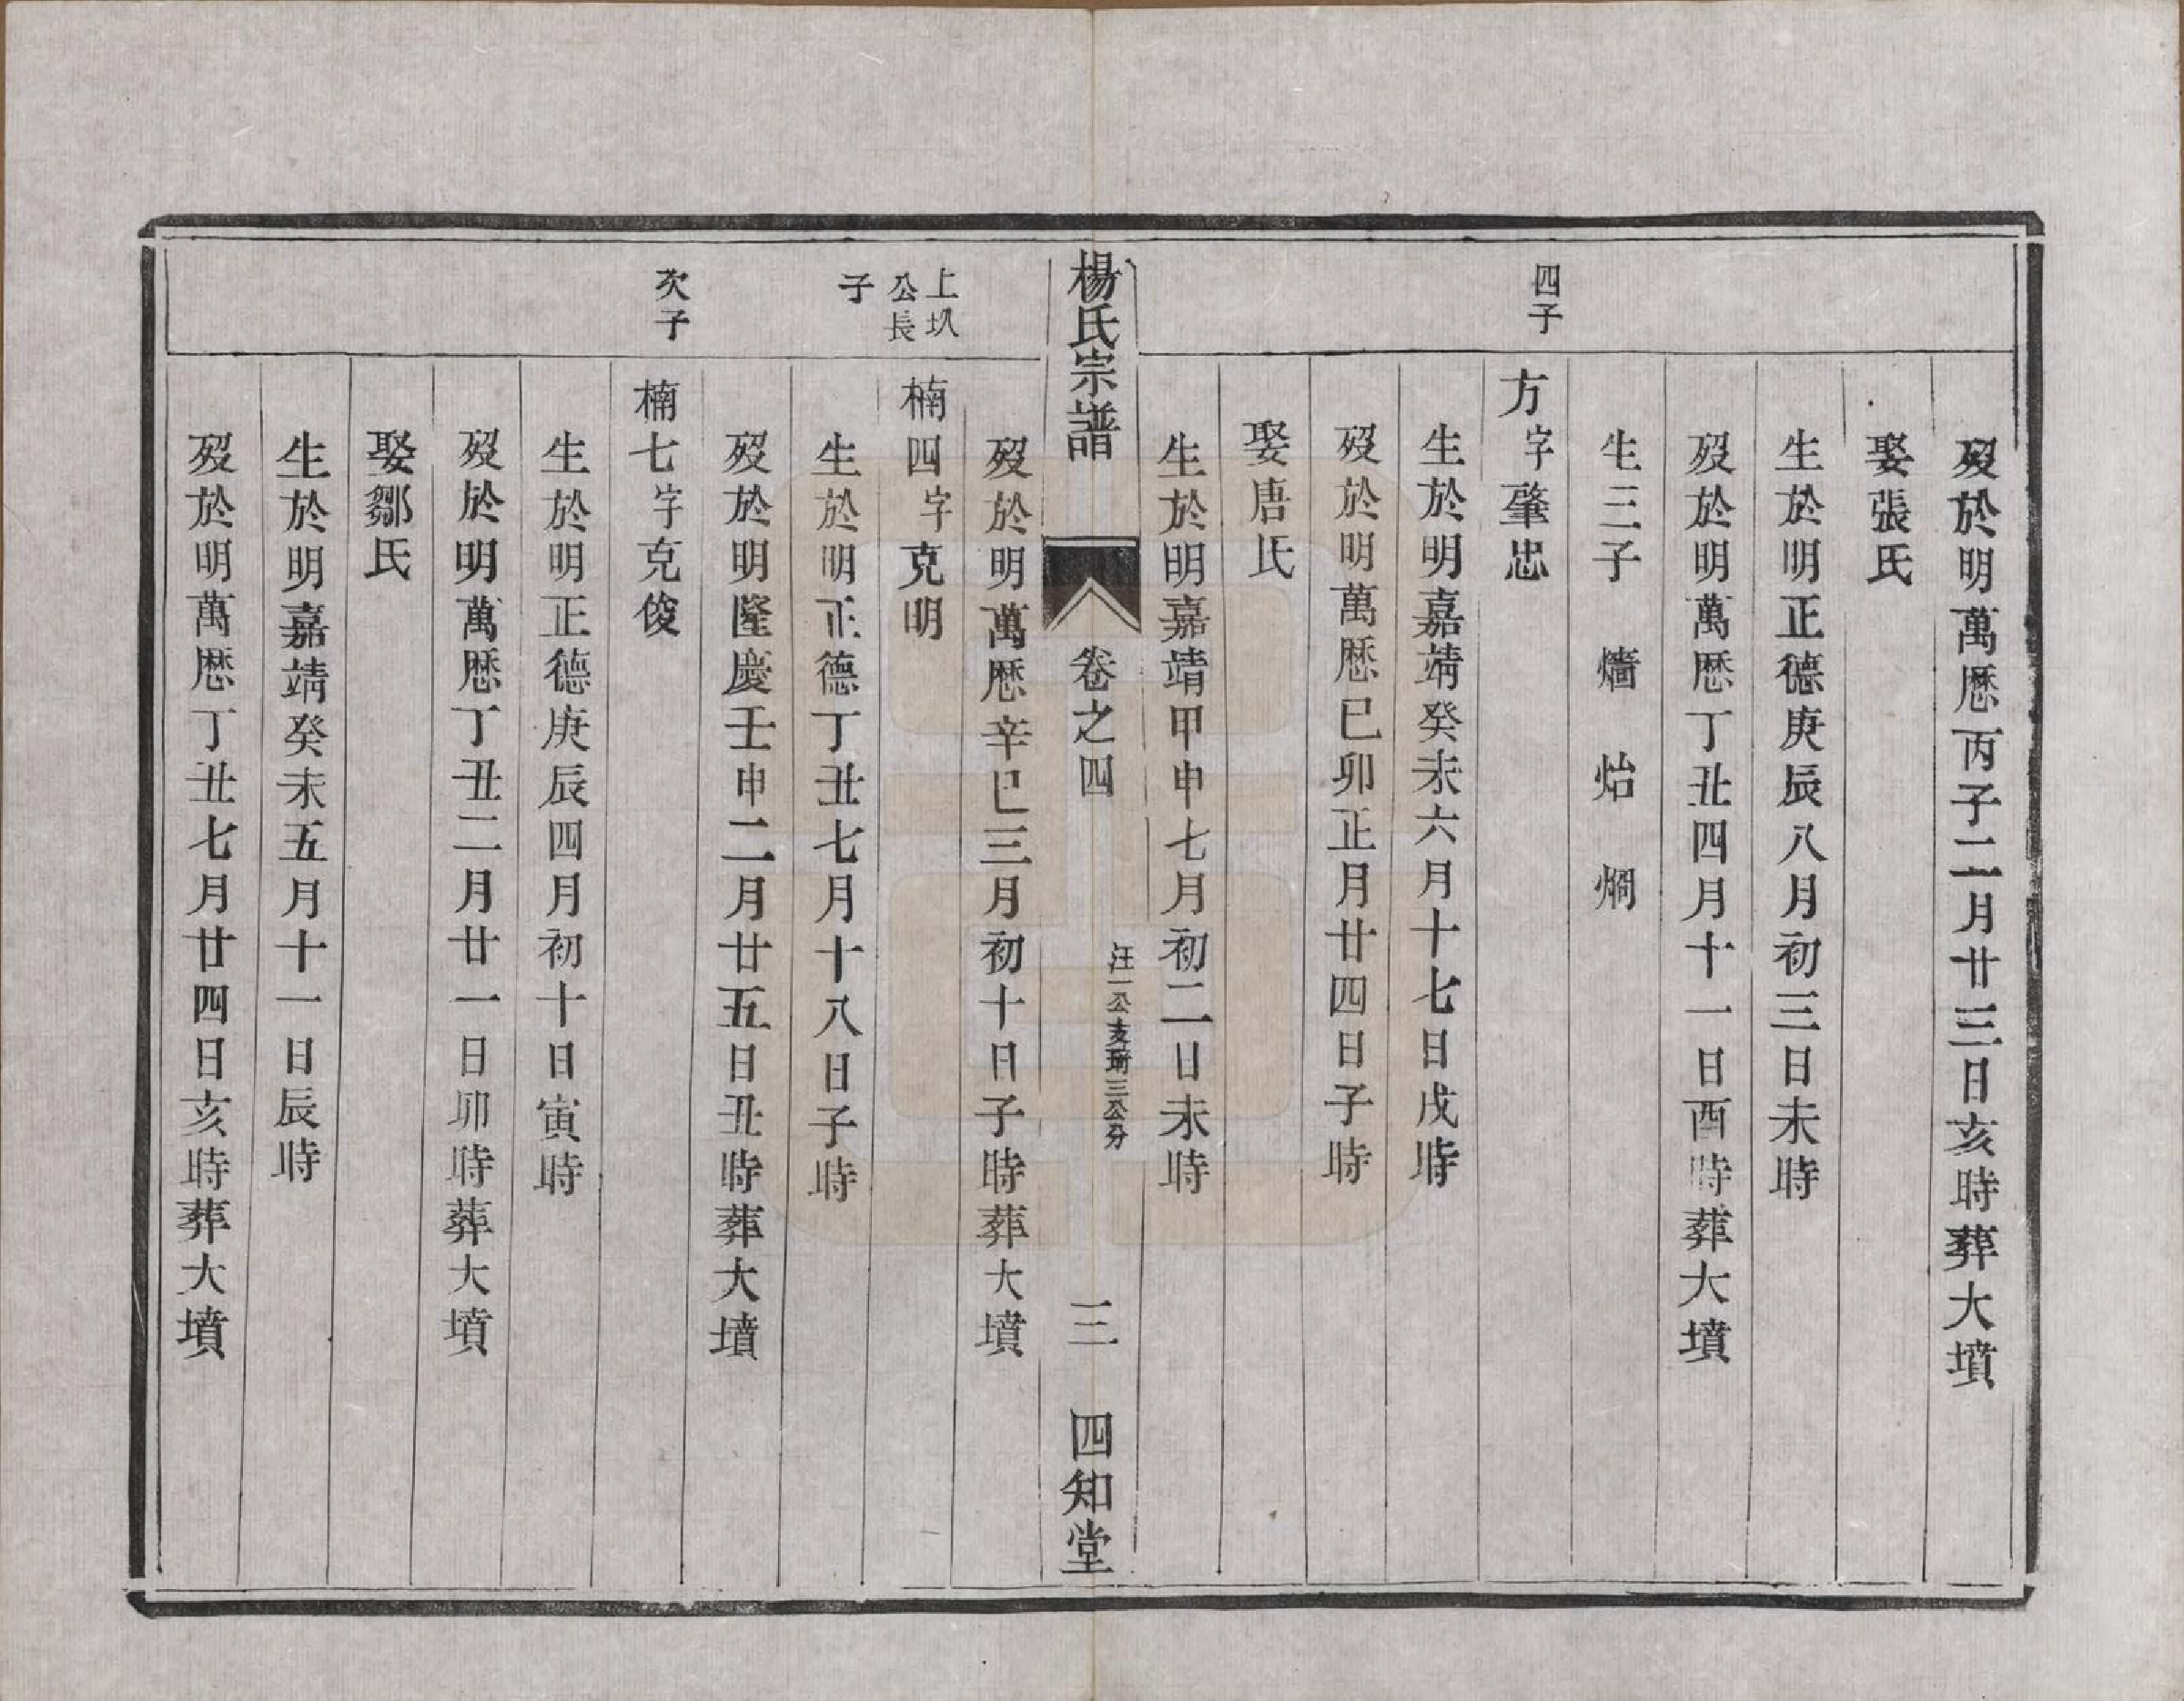 歿於明萬厯丙子二月廿三日亥時葬大墳
娶張氏
生於明正德庚辰八月初三日未時
歿於明萬厯丁丑四月十一日酉時葬大墳
生三子　熺　炲　烱
四子
方字肇忠
生於明嘉靖癸未六月十七日戌時
歿於明萬厯已卯正月廿四日子時
娶唐氏
生於明嘉靖甲申七月初二日未時
楊氏宗譜　卷之四　汪一公支琦三公分　三　四知堂
歿於明萬厯辛巳三月初十日子時葬大墳
上圦
公長
子
楠四字克明
生於明正德丁丑七月十八日子時
歿於明隆慶壬申二月廿五日丑時葬大墳
次子
楠七字克俊
生於明正德庚辰四月初十日寅時
歿於明萬厯丁丑二月廿一日卯時葬大墳
娶鄒氏
生於明嘉靖癸未五月十一日辰時
歿於明萬厯丁丑七月廿四日亥時葬大墳